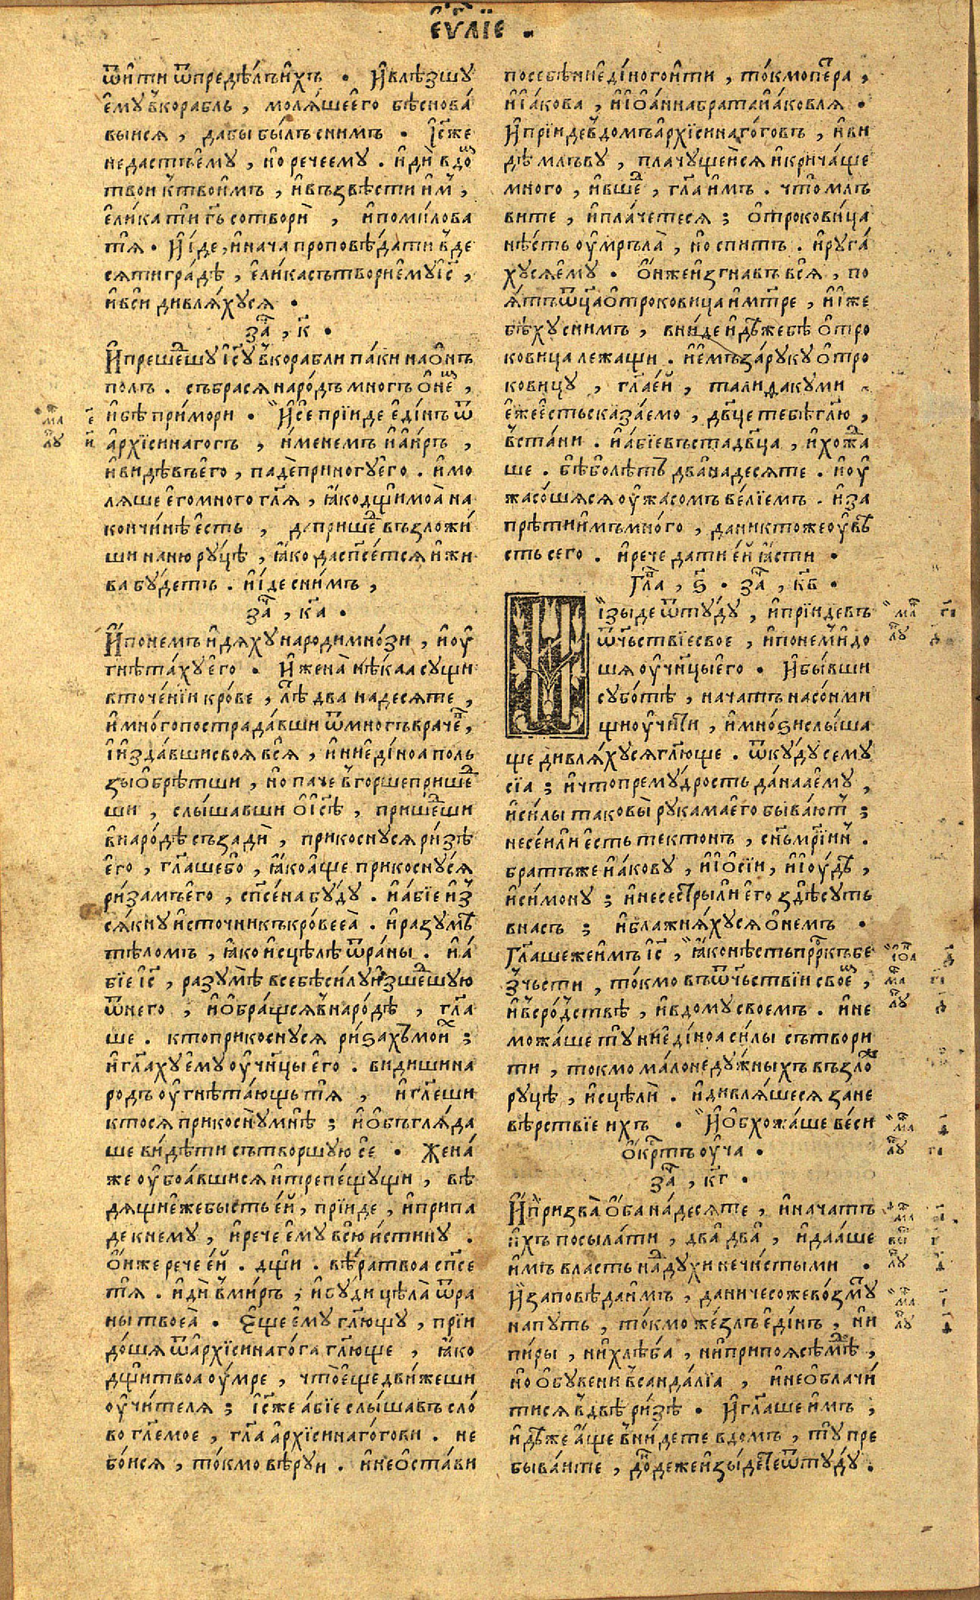 є҆ѵⷢ҇лїе .
ѿити ѿпредѣлъихъ . И҆влѣзшу
є҆му в̾корабль , молѧ́шеего бѣснова́
выисѧ , дабы былъ снимъ . І҆с҃же
недастъ є҆му , но речеему . иди̇̀ вдоⷨ
твои к̾твоимъ , ивъзвѣсти им̾ ,
є҆лика ти гь҃ сотвори̇̀ , и҆помилова
тѧ . И҆и́де , и҆нача проповѣ́дати в̾де
сѧтигра́дѣ , є҆лика сътвори є҆му і҆с҃ ,
и҆вси дивлѧ́хусѧ .
заⷱ҇ , к҃ .
И҆прешеⷣшу і҆с҃у в̾корабли па́ки наѻ҆нъ
полъ . събрасѧ наро́дъ многъ ѻ҆неⷨ ,
и҆бѣ при́мори . И҆се прїи́де є҆ди́нъ ѿ
а҆рхїсинагогъ , и҆менемъ и҆аи́ръ ,
и҆виде́въ є҆го , падѐ приногу̀ є҆го . и҆мо
лѧше є҆го много гл҃ѧ , ꙗ҆ко дщи моа̀ на
кончи́нѣ є҆сть , да прише́ⷣ възложи́
ши наню ру́цѣ , ꙗ҆ко даспс҃е́тсѧ и҆жи
ва бу́детъ . и҆и́де снимъ ,
заⷱ҇ , к҃а .
И҆понемъ и҆дѧ́ху народи мно́зи , и҆оу҆
гнѣта́ху є҆го . И҆жена̀ нѣкаа сущи
вточе́нїи кро́ве , лѣⷮ два надесѧте ,
и҆мно́го пострада́вши ѿмногъ враче́и ,
и҆изда́вши своѧ всѧ̀ , и҆ние҆ди́ноа поль
зы ѻ҆брѣ́тши , но паче в̾горше прише́ⷣ
ши , слы́шавши ѻ҆і҆с҃ѣ , прише́ⷣши
внаро́дѣ съзади̇̀ , прикоснусѧ ри́зѣ
є҆го , гл҃аше бо , ꙗ҆ко а҆ще прикосну́сѧ
ри́замъ є҆го , спс҃е́на бу́ду . и҆а́бїе и҆з̾
сѧ́кну и҆сточникъ кро́ве еѧ̀ . и҆разумѣ
тѣломъ , ꙗ҆ко и҆сцѣлѣ̀ ѿра́ны . и҆а́
бїе і҆с҃ , разумѣ̀ всебѣ си́лу и҆зше́ⷣшую
ѿнего , и҆ѻ҆бра́щсѧ в̾наро́дѣ , гл҃а
ше . кто прикоснусѧ ри́захъ моиⷯ ;
и҆гл҃аху є҆му оу҆чн҃цы є҆го . ви́диши на
родъ оу҆гнѣта́ющь тѧ , и҆гл҃еши
ктосѧ прикосну̀ мнѣ ; и҆ѻ҆бъглѧ́да
ше ви́дѣти сътворшую сѐ . Жена́
же оу҆боа́вшисѧ и҆трепе́щущи , вѣ́
дѧщи є҆же бысть е҆и́ , прїи́де , и҆припа
де кнему , и҆рече є҆му всю̀ и҆стину .
ѻ҆нже рече е҆и́ . дщи . вѣ́ра твоа спс҃е
тѧ . и҆ди̇̀ в̾миръ , и҆буди цѣла̀ ѿра
ны твоеѧ̀ . Є҆ще є҆му гл҃ющу , прїи
до́шѧ ѿархїсинаго́га гл҃юще , ꙗ҆ко
дщи твоа оу҆́мре , что є҆ще дви́жеши
оу҆чи́телѧ ; і҆с҃же а́бїе слы́шавъ сло́
во гл҃емое , гл҃а а҆рхїсинаго́гови . не
бо́исѧ , то́кмо вѣ́руи . и҆не ѻ҆ста́ви
посебѣ ние҆ди́ного и҆ти , то́кмо пе҆тра ,
и҆и҆а́кова , и҆и҆ѻа́нна брата и҆а́ковлѧ .
И҆прїи́де в̾домъ а҆рхїсинаго́говъ , и҆ви
дѣ̀ млъву , пла́чущеисѧ и҆крича́ще
много , и҆вшеⷣ , гл҃а имъ . что млъ
вите , и҆пла́четесѧ ; ѻ҆трокови́ца
нѣ́сть оу҆мръла̀ , но спитъ . и҆руга́
хусѧ є҆му . ѻ҆́нже и҆згна́въ всѧ̀ , по
ѧ́тъ ѿц҃а ѻ҆трокови́ца и҆мт҃ре , и҆и́же
бѣ́ху снимъ , вни́де и҆дѣ́же бѣ̀ ѻ҆тро
кови́ца лежа́щи . и҆е҆мъ за́руку ѻ҆тро
кови́цу , гл҃а е҆и́ , талида куми
є҆же є҆сть сказа́емо , дв҃це тебѣ гл҃ю ,
в̾ста́ни . и҆а́бїе въста дв҃ца , и҆хожⷣа
ше . бѣ́ бо лѣтъ два́ надесѧте . и҆оу҆
жасо́шасѧ оу҆́жасомъ ве́лїемъ . и҆за
прѣти имъ мно́го , да никтоже оу҆вѣ
сть сего . и҆рече дати е҆и́ ꙗ҆сти .
Глаⷡ҇ , ѕ҃ . заⷱ҇ , к҃в .
И҆зы́де ѿту́ду , и҆прїи́де въ
ѿчьствїе свое , и҆понемⷨ и҆до
шѧ оу҆чн҃цы є҆го . И҆бы́вши
субо́тѣ , нача́тъ насо́нми
щи оу҆чи́ти , и҆мно́ѕи слы́ша
ще дивлѧ́хусѧ гл҃юще . ѿку́ду сему
сїа ; и҆что̀ прему́дрость да́наа є҆му ,
и҆си́лы таковы̀ рука́ма є҆го быва́ютⷮ ;
не се́ ли є҆сть тектонъ , сн҃ъ мр҃їинъ .
бра́тъже и҆а́кову , и҆и҆ѻ҆сі́и , и҆и҆у́дѣ ,
и҆си́мону ; и҆не се́стры ли є҆го здѣ̀ су́ть
внасъ ; и҆блажнѧ́хусѧ ѻ҆немъ .
Гл҃аше же имъ і҆с҃ , ꙗ҆ко нѣ́сть прⷪ҇ркъ бе
з̾чьсти , токмо въѿчьствїи своеⷨ ,
и҆в̾сро́дствѣ , и҆вдому своемъ . и҆не
можа́ше ту̀ ние҆ди́ноа си́лы сътвори
ти , токмо ма́ло неду́жныхъ възлоⷤ
ру́цѣ , и҆сцѣли̇̀ . и҆дивлѧ́шесѧ за не
вѣрствїе ихъ . И҆ѻ҆бхожа́ше ве́си
ѻ҆кртⷭ҇ъ оу҆ча .
заⷱ҇ , к҃г .
И҆призва̀ ѻ҆ба на́десѧте , и҆нача́тъ
и҆хъ посыла́ти , два̀ два̀ , и҆даа́ше
и҆мъ власть надⷣухи нечи́стыми .
И҆заповѣ́да имъ , да ничесоже во́змуⷮ
на путь , то́кмо же́злъ є҆ди́нъ , ни
пи́ры , ни хлѣ́ба , ни при поѧсѣ мѣ́ди ,
но ѻ҆бувени в̾санда́лїа , и҆не ѻ҆блачи́
тисѧ в̾двѣ ри́зѣ . И҆гл҃аше имъ ,
и҆дѣ́же а́ще в̾ни́дете вдомъ , ту̀ пре
быва́ите , до́ндеже и҆зы́дете ѿту́ду .